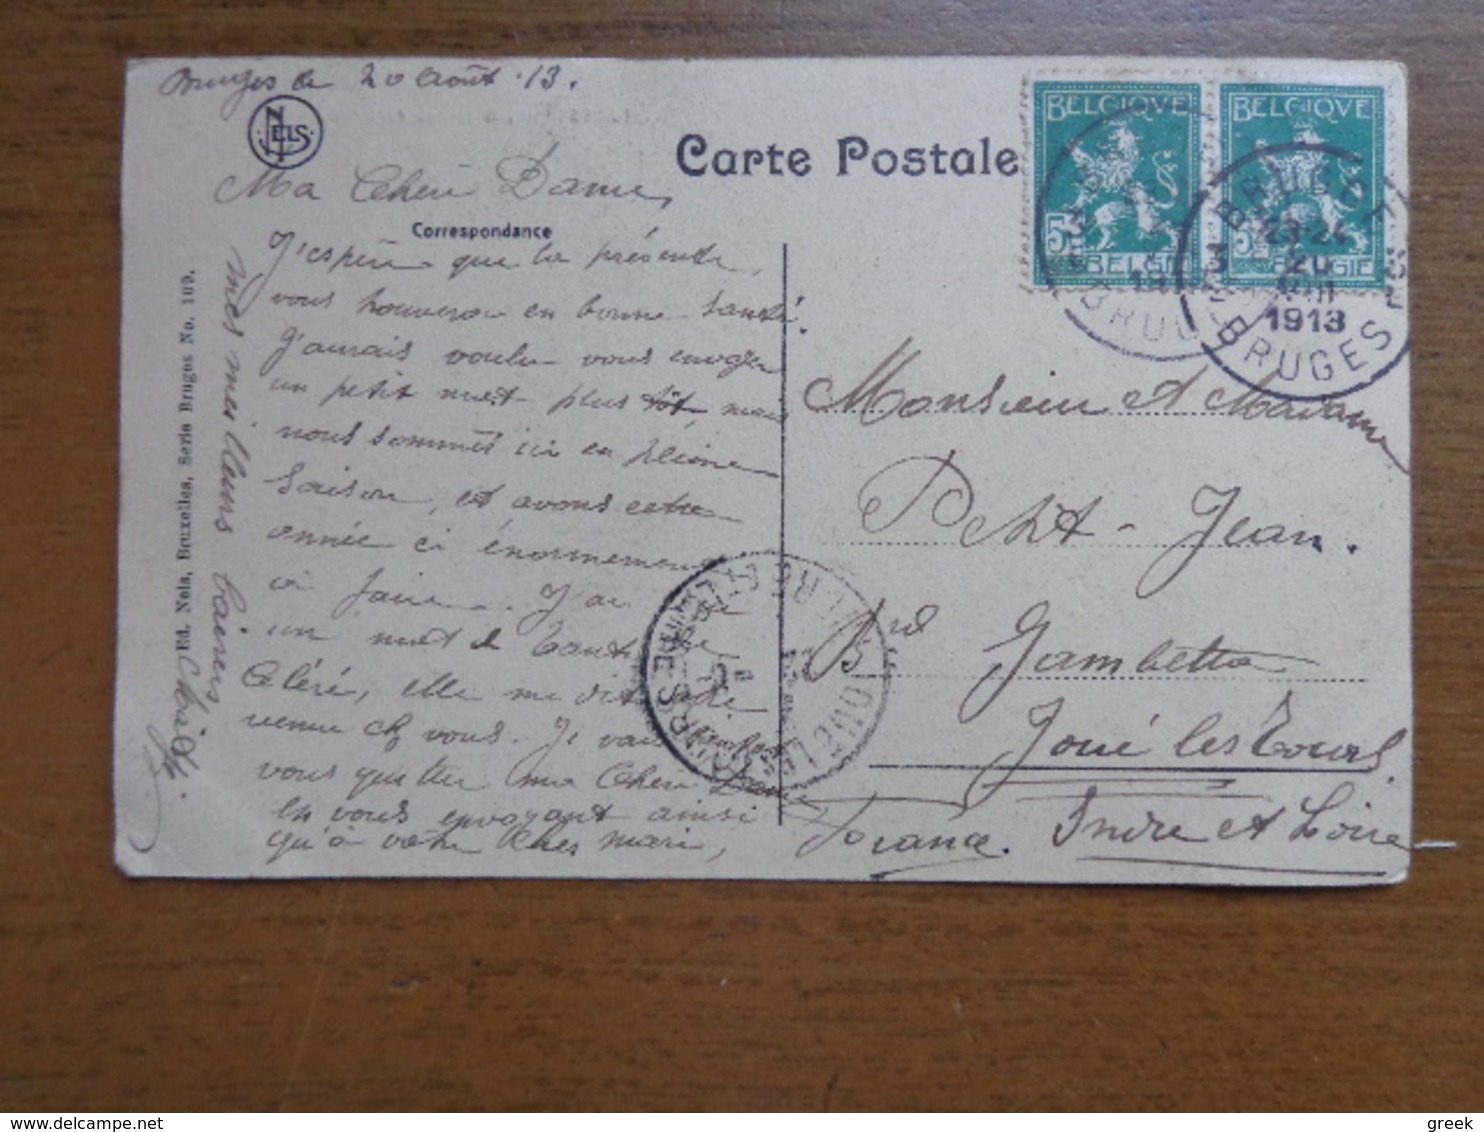 Bruges le 20 Août 13.
NELS
Carte Postale
Ma Chère Dame,
Correspondance
J'espère que la présente
vous trouvera en bonne santé.
J'aurais voulu vous envoyer
un petit mot plus tôt, mais
nous sommes ici en pleine
saison, et avons cette
année ci énormement
à faire. J'ai
un mot de tante
Céléré, elle me dit
venue chz vous. Je vais
vous quitter ma Chère Dame
en vous envoyant ainsi
qu'à votre Cher mari,
mes meilleurs baisers
Ed. Nels, Bruxelles, Serie Bruges No. 109.
BELGIQUE
5
BELGIË
BELGIQUE
5
BELGIE
BRUGGE
3 23-24
20
VIII
1913
BRUGES
Monsieur et Madame
Petit-Jean.
Brd Gambetta
Joué les Tours
France. Indre et Loire
greek